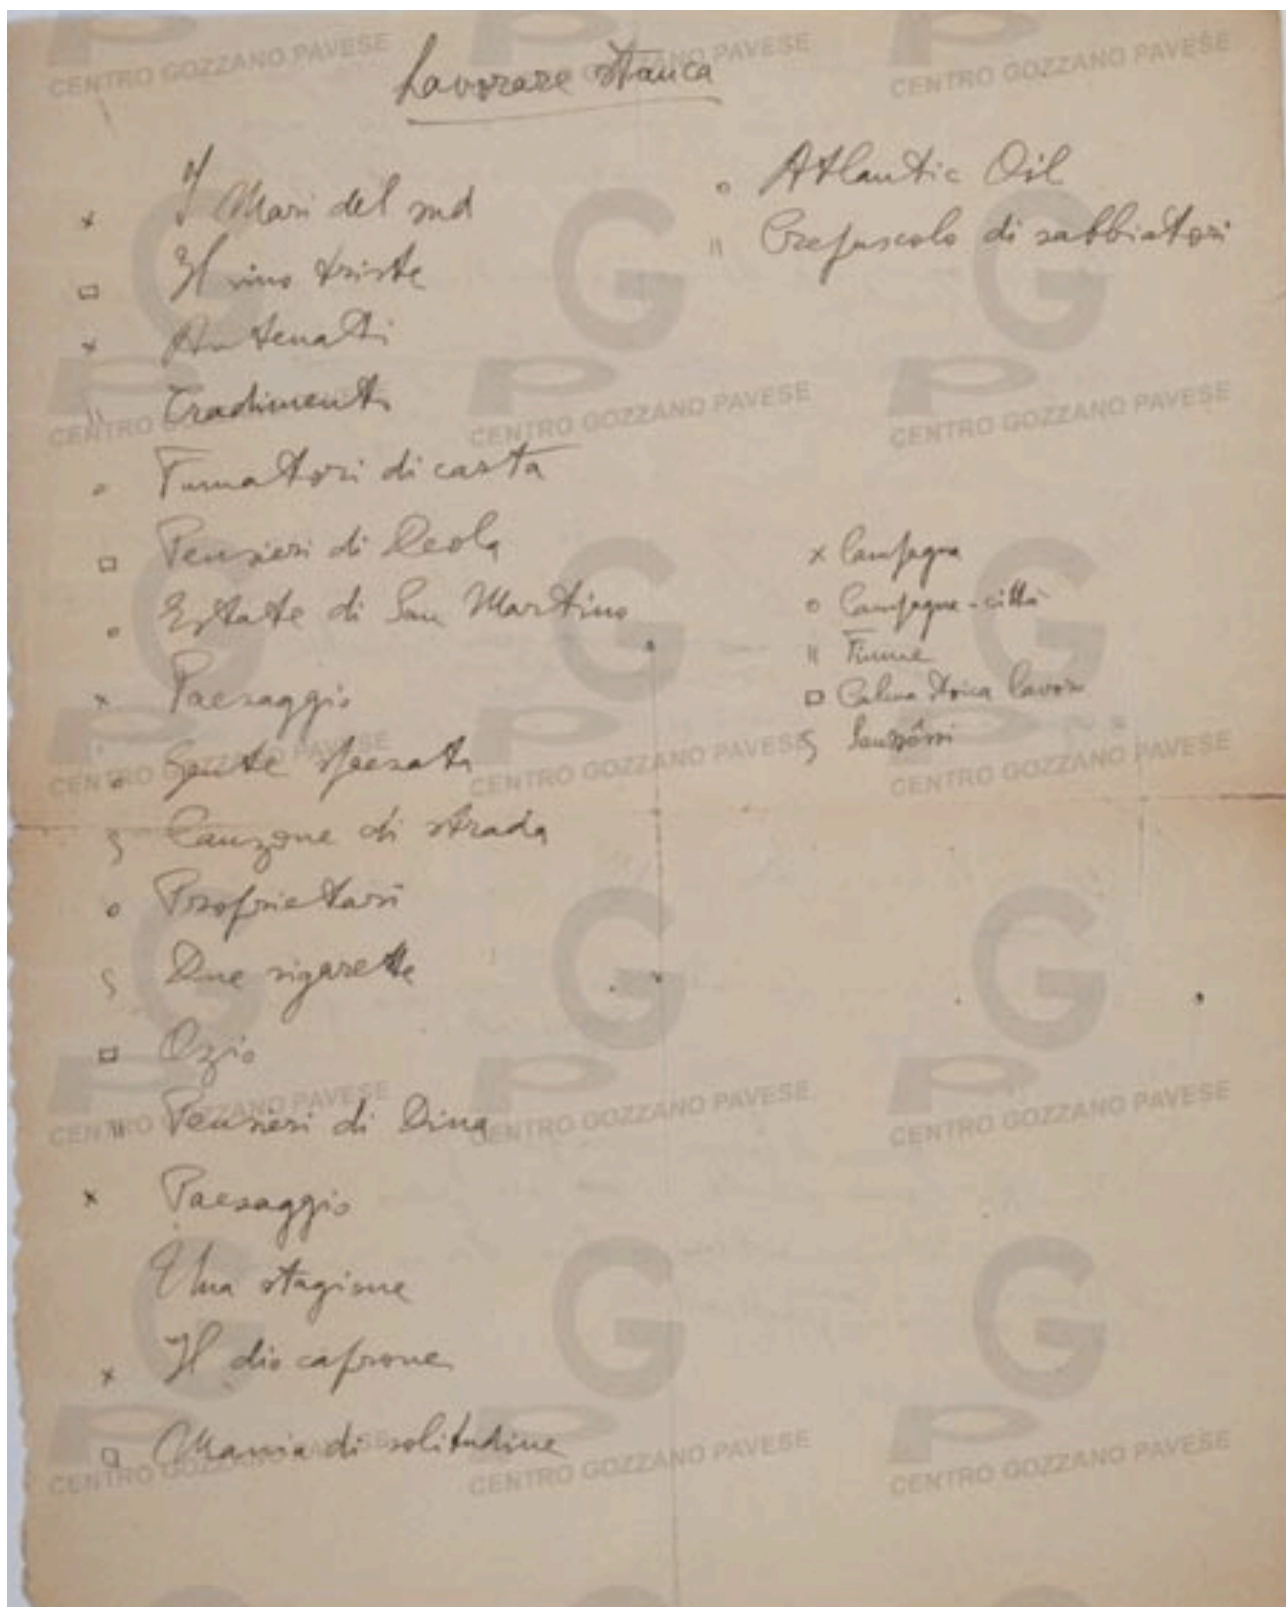 Lavorare stanca
× I Mari del sud
□ Il vino triste
× Antenati
|| Tradimenti
o Fumatori di carta
□ Pensieri di Deola
o Estate di San Martino
× Paesaggio
o Gente spaesata
§ Canzone di strada
o Proprietari
§ Due sigarette
□ Ozio
|| Pensieri di Dina
× Paesaggio
Una stagione
× Il dio caprone
□ Mania di solitudine
o Atlantic Oil
|| Crepuscolo di sabbiatori
× Campagna
o Campagna-città
|| Fiume
□ Calma stoica lavoro
§ Sansôssí
CENTRO GOZZANO PAVESE